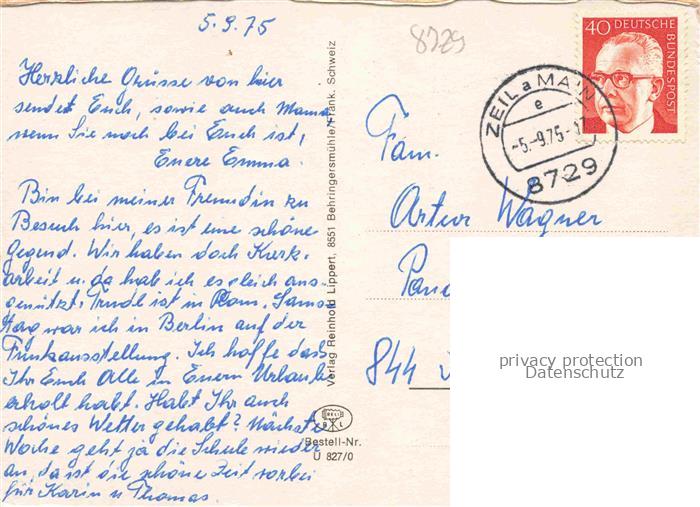 5.9.75
8729
Herzliche Grüsse von hier
sendet Euch, sowie auch Mama
wenn Sie noch bei Euch ist,
Euere Emma.
Bin bei meiner Freundin zu
Besuch hier, es ist eine schöne
Gegend. Wir haben doch Kurz-
arbeit u. da hab ich es gleich aus-
genützt. Trudl ist in Rom. Sams-
tag war ich in Berlin auf der
Funkausstellung. Ich hoffe dass
Ihr Euch Alle in Euern Urlaub
erholt habt. Habt Ihr auch
schönes Wetter gehabt? Nächste
Woche geht ja die Schule wieder
an, da ist die schöne Zeit vorbei
für Karin u Thomas.
Verlag Reinhold Lippert, 8551 Behringersmühle/Fränk. Schweiz
Bestell-Nr.
U 827/0
40 DEUTSCHE BUNDESPOST
ZEIL a MAIN
e
-5.-9.75-17
8729
Fam.
Artur Wagner
844
privacy protection
Datenschutz